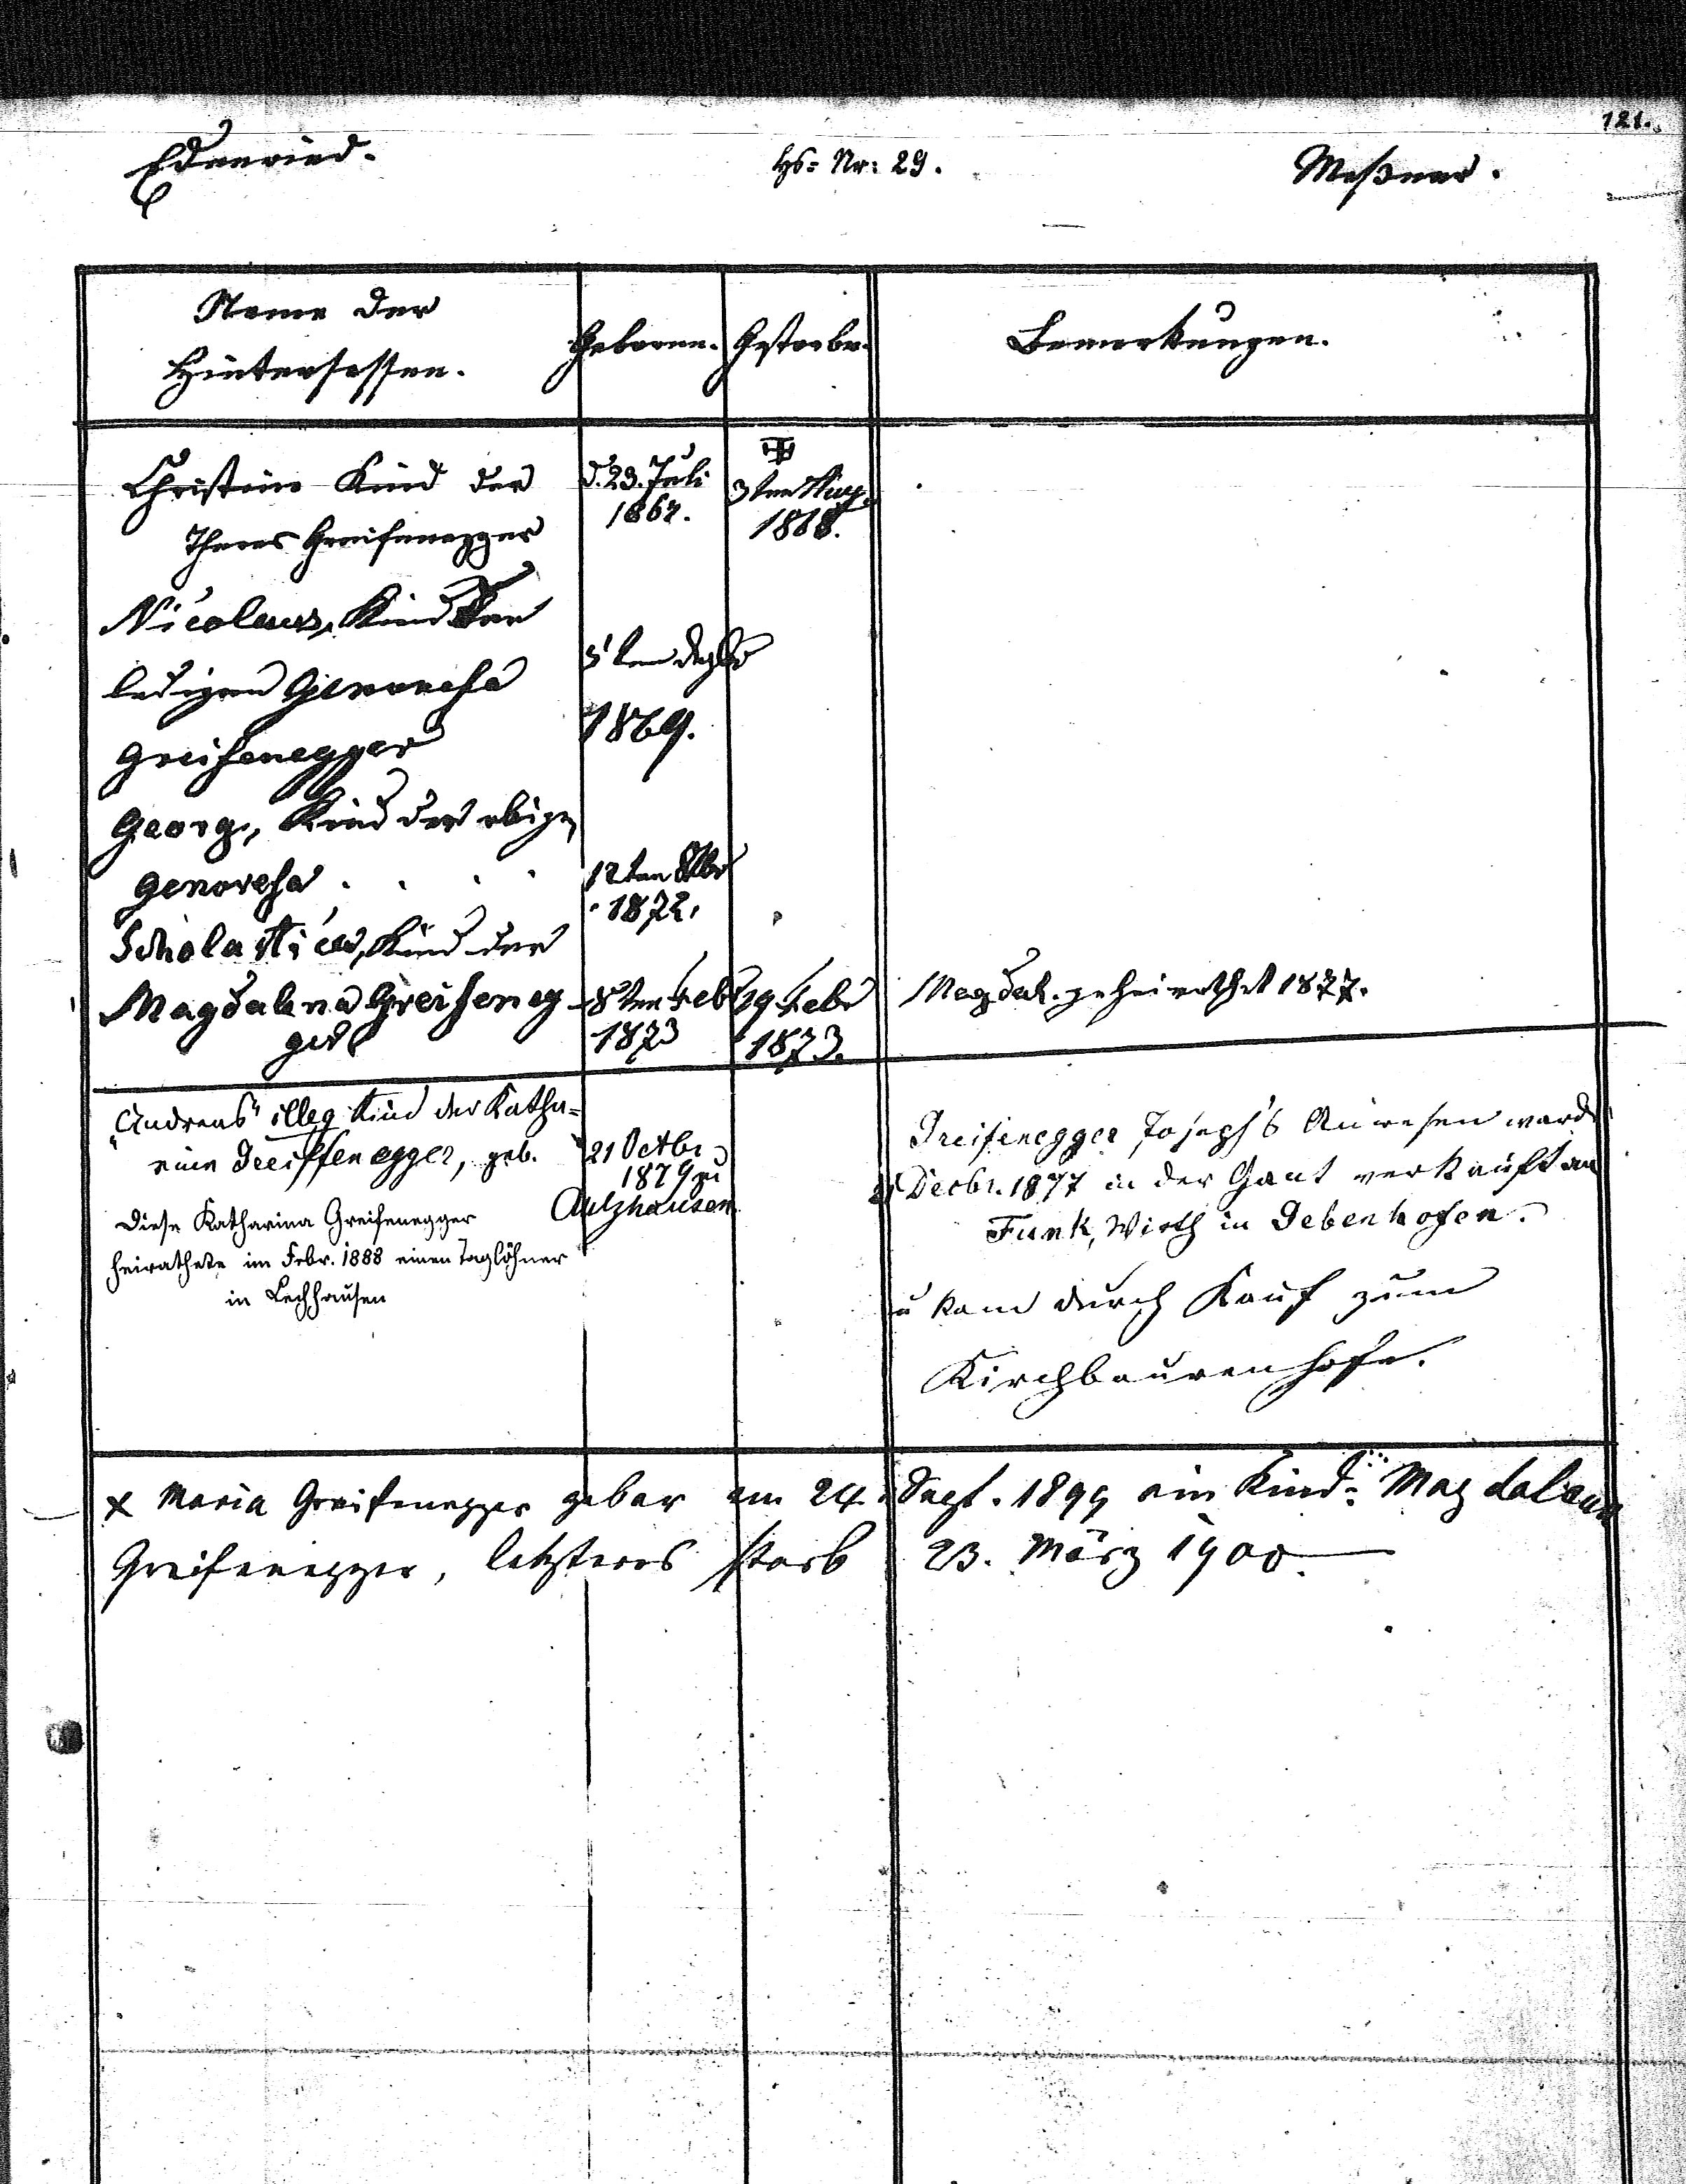 121.
Edenried. Hs: Nr: 29. Meßner.
Name der
Hintersassen.
Geboren. Gestorbn. Bemerkungen.
Christina Kind der d. 23. Juli 3ten Aug.
Theres Greifenegger 1868. 1868.
Nicolaus, Kind der
ledigen Genovefa 5ten Dezbr
Greifenegger 1869.
Georg, Kind der obigen
Genovefa . . . . 12ten Oktbr
1872.
Scholastica, Kind der
Magdalena Greifeneg- 8ten Feb 19 Febr Magdal. geheirathet 1877.
ger 1873 1873.
"Andreas" illeg Kind der Katha=
rina Greiffenegger, geb. 21 Octbr
1879 zu
Aulzhausen
Diese Katharina Greifenegger
heirathete im Febr. 1888 einen Taglöhner
in Lechhausen
Greifenegger Joseph's Anwesen ward
Decbr. 1877 in der Gant verkauft an
Funk, Wirth in Gebenhofen.
u kam durch Kauf zum
Kirchbaurenhofe.
x Maria Greifenegger gebar am 24. Sept. 1899 ein Kind: Magdalena
Greifenegger, letzteres starb 23. März 1900.